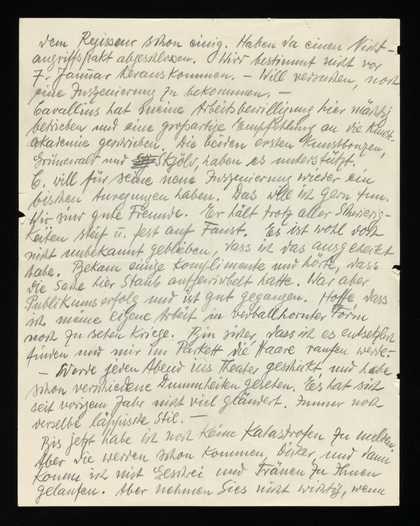 dem Regisseur schon einig. Haben da einen Nicht-
angriffspakt abgeschlossen. Wird bestimmt nicht vor
7. Januar herauskommen. – Will versuchen, noch
eine Inszenierung zu bekommen. –
Cavallius hat meine Arbeitsbewilligung hier mächtig
betrieben und eine großartige Empfehlung an die Kunst-
akademie geschrieben. Die beiden ersten Kunstbonzen,
Grünewald und Sköld, haben es unterstützt.
C. will für seine neue Inszenierung wieder ein
bischen Anregungen haben. Das will ich gern tun.
Wir sind gute Freunde. Er hält trotz aller Schwierig-
keiten steif u. fest auf Faust. Es ist wohl doch
nicht unbekannt geblieben, dass ich das ausgeheckt
habe. Bekam einige Komplimente und hörte, dass
die Sache hier Staub aufgewirbelt hatte. War aber
Publikumserfolg und ist gut gegangen. Hoffe, dass
ich meine eigene Arbeit in verballhornter Form
noch zu sehen kriege. Bin sicher, dass ich es entsetzlich
finden und mir im Parkett die Haare raufen werde.
– Werde jeden Abend ins Theater geschickt und habe
schon verschiedene Dummheiten gesehen. Es hat sich
seit vorigem Jahr nicht viel geändert. Immer noch
derselbe läppische Stil. –
Bis jetzt habe ich noch keine Katastrofen zu melden.
Aber die werden schon kommen, sicher, und dann
komme ich mit Geschrei und Tränen zu Ihnen
gelaufen. Aber nehmen Sies nicht wichtig, wenn